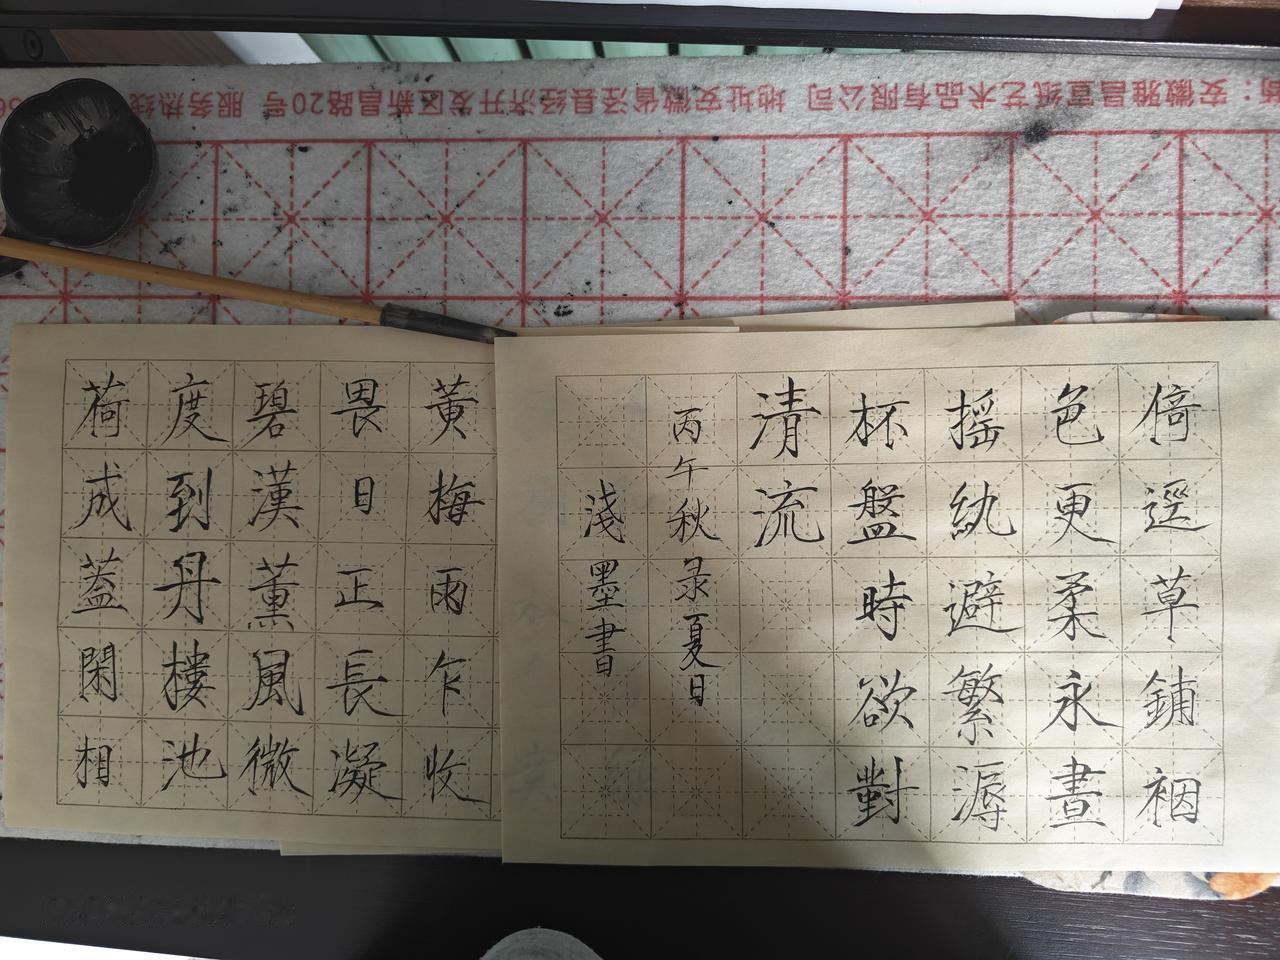 安徽雅昌宣纸艺术品有限公司 地址安徽省泾县经济开发区新昌路20号 服务热线
黃梅雨乍收
畏日正長凝
碧漢薰風微
度到丹樓池
荷成蓋閑相
倚逕草鋪裀
色更柔永晝
搖紈避繁溽
杯盤時欲對
清流
丙午秋录夏日
淺墨書